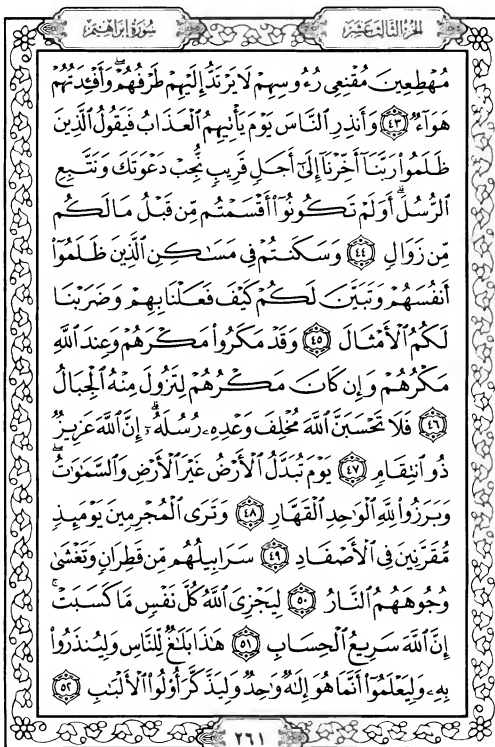 سُورَةُ إِبْرَاهِيمَ
الجُزْءُ الثَّالِثَ عَشَرَ
مُهْطِعِينَ مُقْنِعِي رُءُوسِهِمْ لَا يَرْتَدُّ إِلَيْهِمْ طَرْفُهُمْ ۖ وَأَفْـِٔدَتُهُمْ
هَوَآءٌ ٤٣ وَأَنذِرِ ٱلنَّاسَ يَوْمَ يَأْتِيهِمُ ٱلْعَذَابُ فَيَقُولُ ٱلَّذِينَ
ظَلَمُوا۟ رَبَّنَآ أَخِّرْنَآ إِلَىٰٓ أَجَلٍ قَرِيبٍ نُّجِبْ دَعْوَتَكَ وَنَتَّبِعِ
ٱلرُّسُلَ ۗ أَوَلَمْ تَكُونُوٓا۟ أَقْسَمْتُم مِّن قَبْلُ مَا لَكُم
مِّن زَوَالٍ ٤٤ وَسَكَنتُمْ فِى مَسَٰكِنِ ٱلَّذِينَ ظَلَمُوٓا۟
أَنفُسَهُمْ وَتَبَيَّنَ لَكُمْ كَيْفَ فَعَلْنَا بِهِمْ وَضَرَبْنَا
لَكُمُ ٱلْأَمْثَالَ ٤٥ وَقَدْ مَكَرُوا۟ مَكْرَهُمْ وَعِندَ ٱللَّهِ
مَكْرُهُمْ وَإِن كَانَ مَكْرُهُمْ لِتَزُولَ مِنْهُ ٱلْجِبَالُ
٤٦ فَلَا تَحْسَبَنَّ ٱللَّهَ مُخْلِفَ وَعْدِهِۦ رُسُلَهُۥٓ ۗ إِنَّ ٱللَّهَ عَزِيزٌ
ذُو ٱنتِقَامٍ ٤٧ يَوْمَ تُبَدَّلُ ٱلْأَرْضُ غَيْرَ ٱلْأَرْضِ وَٱلسَّمَٰوَٰتُ ۖ
وَبَرَزُوا۟ لِلَّهِ ٱلْوَٰحِدِ ٱلْقَهَّارِ ٤٨ وَتَرَى ٱلْمُجْرِمِينَ يَوْمَئِذٍ
مُّقَرَّنِينَ فِى ٱلْأَصْفَادِ ٤٩ سَرَابِيلُهُم مِّن قَطِرَانٍ وَتَغْشَىٰ
وُجُوهَهُمُ ٱلنَّارُ ٥٠ لِيَجْزِىَ ٱللَّهُ كُلَّ نَفْسٍ مَّا كَسَبَتْ ۚ
إِنَّ ٱللَّهَ سَرِيعُ ٱلْحِسَابِ ٥١ هَٰذَا بَلَٰغٌ لِّلنَّاسِ وَلِيُنذَرُوا۟
بِهِۦ وَلِيَعْلَمُوٓا۟ أَنَّمَا هُوَ إِلَٰهٌ وَٰحِدٌ وَلِيَذَّكَّرَ أُو۟لُوا۟ ٱلْأَلْبَٰبِ ٥٢
٢٦١